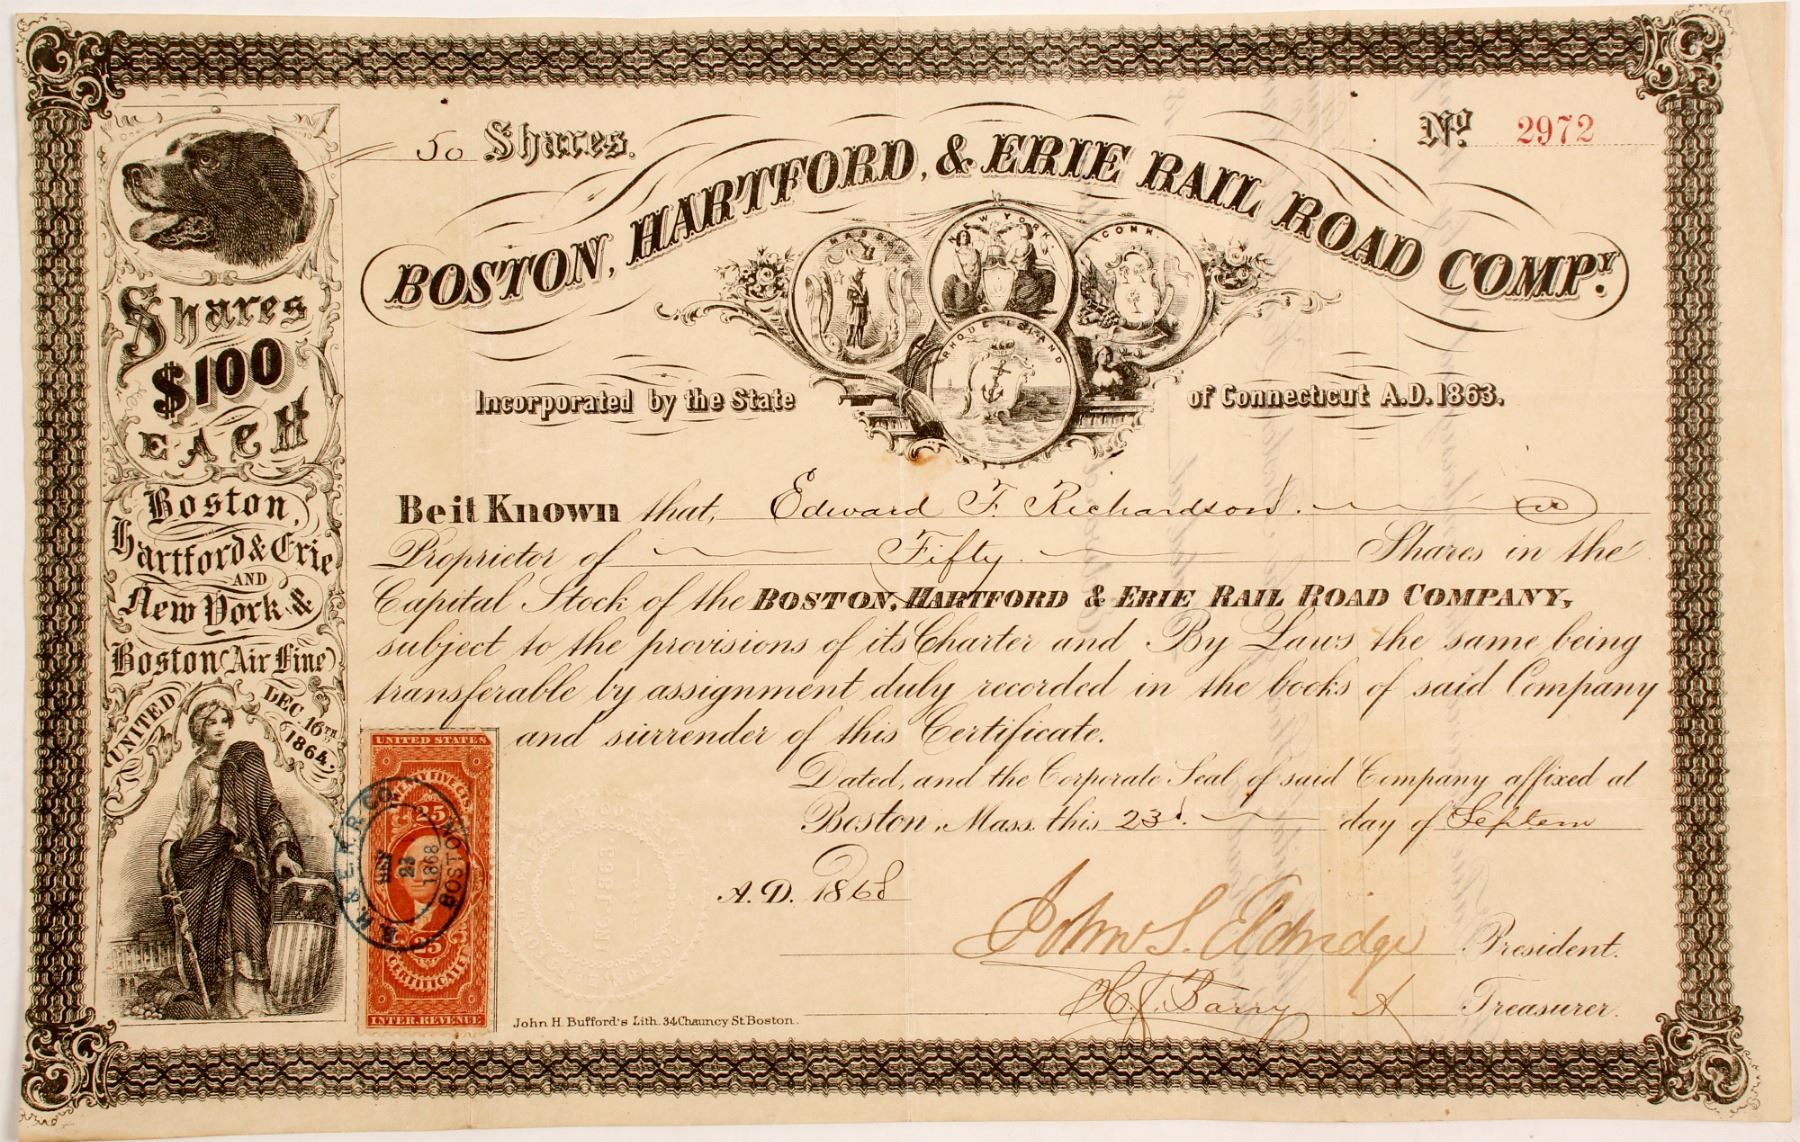 50 Shares.
No. 2972
BOSTON, HARTFORD, & ERIE RAIL ROAD COMPY.
MASS.
NEW YORK.
CONN.
RHODE ISLAND
Incorporated by the State of Connecticut A.D. 1863.
Shares
$100
EACH
Boston,
Hartford & Erie
AND
New York &
Boston (Air Line)
UNITED
DEC. 16TH
1864.
Be it Known that, Edward F. Richardson. is
Proprietor of Fifty Shares in the
Capital Stock of the BOSTON, HARTFORD & ERIE RAIL ROAD COMPANY,
subject to the provisions of its Charter and By Laws the same being
transferable by assignment duly recorded in the books of said Company
and surrender of this Certificate.
Dated, and the Corporate Seal of said Company affixed at
Boston, Mass. this 23d. day of Septem
A.D. 1868
John S. Eldridge President.
Barry Treasurer.
UNITED STATES
TWENTY FIVE CTS.
25
25
CERTIFICATE
INTER. REVENUE
B. H. & E. R. R. CO.
23
1868
BOSTON
John H. Bufford's Lith. 34 Chauncy St. Boston.